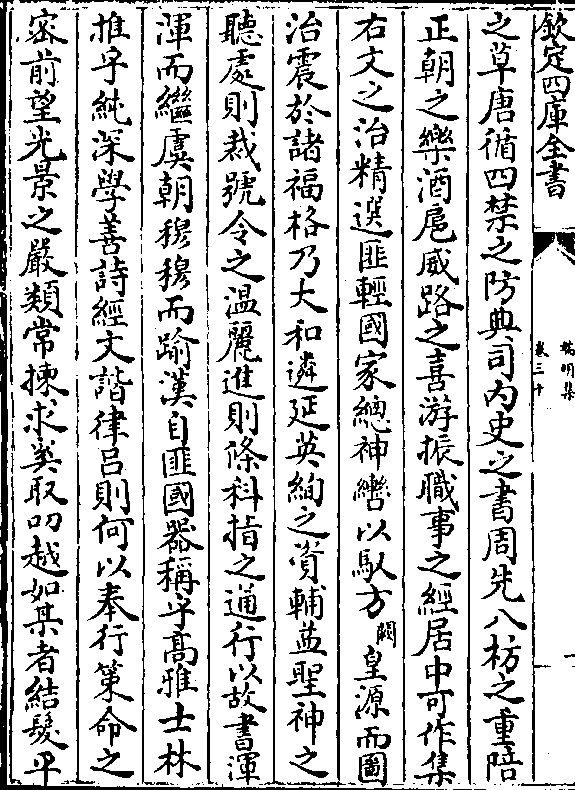 欽定四庫全書
端明集
卷三十
之草唐循四禁之防典司内史之書周先八枋之重陪
正朝之樂酒扈威路之喜游振職事之經居中可作集
右文之治精選匪輕國家緫神轡以馭方闕皇源而圖
治震於諸福格乃大和遴延英絢之資輔益聖神之
聽處則裁號令之温麗進則條科指之通行以故書渾
渾而繼虞朝穆穆而踰漢自匪國器稱乎高雅士林
推乎純深學善詩經文諧律吕則何以奉行策命之
宻前望光景之嚴類常揀求奚取叨越如某者結髮平